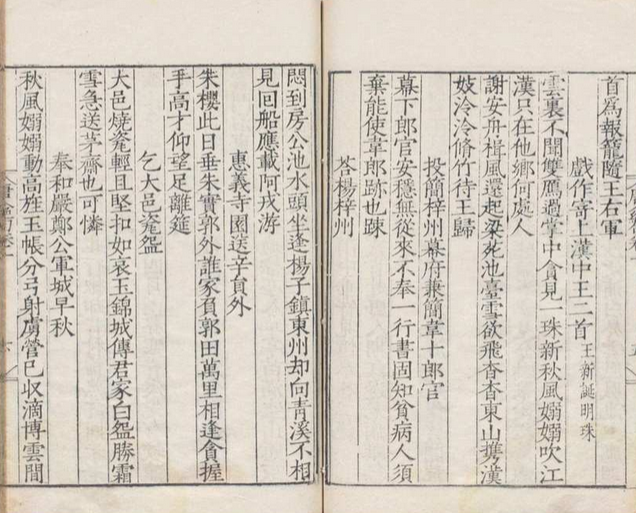 首爲報籠隨王右軍
戲作寄上漢中王二首 王新誕明珠
雲裏不聞雙鴈過掌中貪見一珠新秋風嫋嫋吹江
漢只在他鄉何處人
謝安舟楫風還起梁苑池臺雪欲飛杳杳東山携漢
妓泠泠脩竹待王歸
投簡梓州幕府兼簡韋十郎官
幕下郎官安穩無從來不奉一行書固知貧病人須
棄能使韋郎跡也踈
荅楊梓州
悶到房公池水頭坐逢楊子鎮東州却向青溪不相
見回船應載阿戎游
惠義寺園送辛員外
朱櫻此日垂朱實郭外誰家負郭田萬里相逢貪握
手高才仰望足離筵
乞大邑瓷盌
大邑燒瓷輕且堅扣如哀玉錦城傳君家白盌勝霜
雪急送茅齋也可憐
奉和嚴鄭公軍城早秋
秋風嫋嫋動高旌玉帳分弓射虜營已収滴博雲間